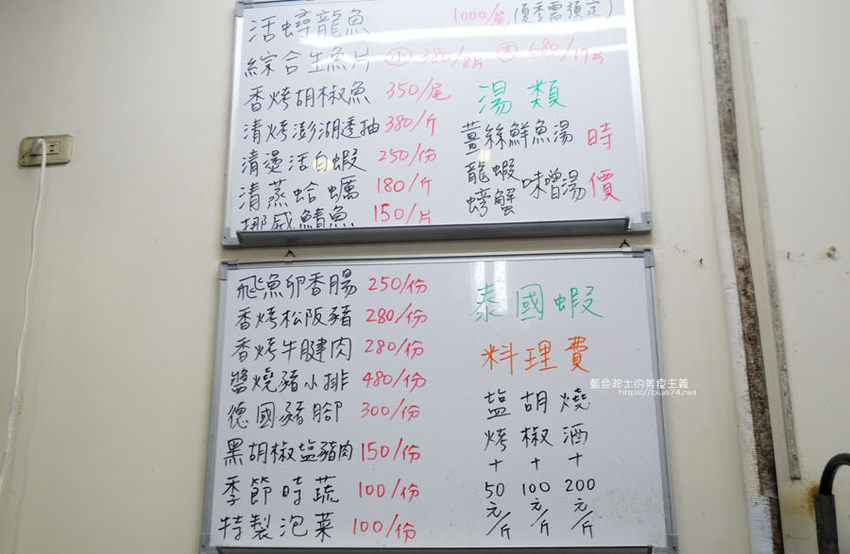 活蟳龍魚 1000/尾 (夏季需預定)
綜合生魚片 小 380/8片 大 680/17片
香烤胡椒魚 350/尾
清烤澎湖透抽 380/斤
清燙活白蝦 250/份
清蒸蛤蠣 180/斤
挪威鯖魚 150/片
湯類
薑絲鮮魚湯 時
龍蝦
螃蟹 味噌湯 價
飛魚卵香腸 250/份
香烤松阪豬 280/份
香烤牛腱肉 280/份
醬燒豬小排 480/份
德國豬腳 300/份
黑胡椒塩豬肉 150/份
季節時蔬 100/份
特製泡菜 100/份
泰國蝦
料理費
塩烤+50元/斤
胡椒+100元/斤
燒酒+200元/斤
藍色起士的美食主義
https://blue74.net